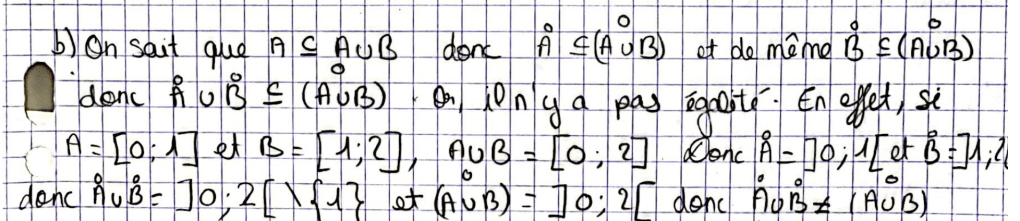 b) On sait que A ⊆ A∪B donc Å ⊆ (A∪B)° et de même B̊ ⊆ (A∪B)°
donc Å ∪ B̊ ⊆ (A∪B)°. Or, il n'y a pas égalité. En effet, si
A = [0; 1] et B = [1; 2], A∪B = [0; 2]. Donc Å = ]0; 1[ et B̊ = ]1; 2[
donc Å∪B̊ = ]0; 2[ \ {1} et (A∪B)° = ]0; 2[ donc Å∪B̊ ≠ (A∪B)°